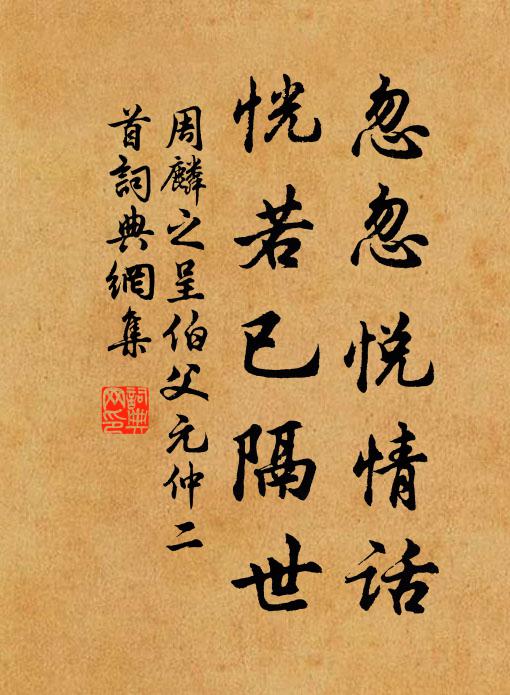 忽忽悦情话
恍若已隔世
周麟之呈伯父元仲二
首詞典網集
詞典
网印